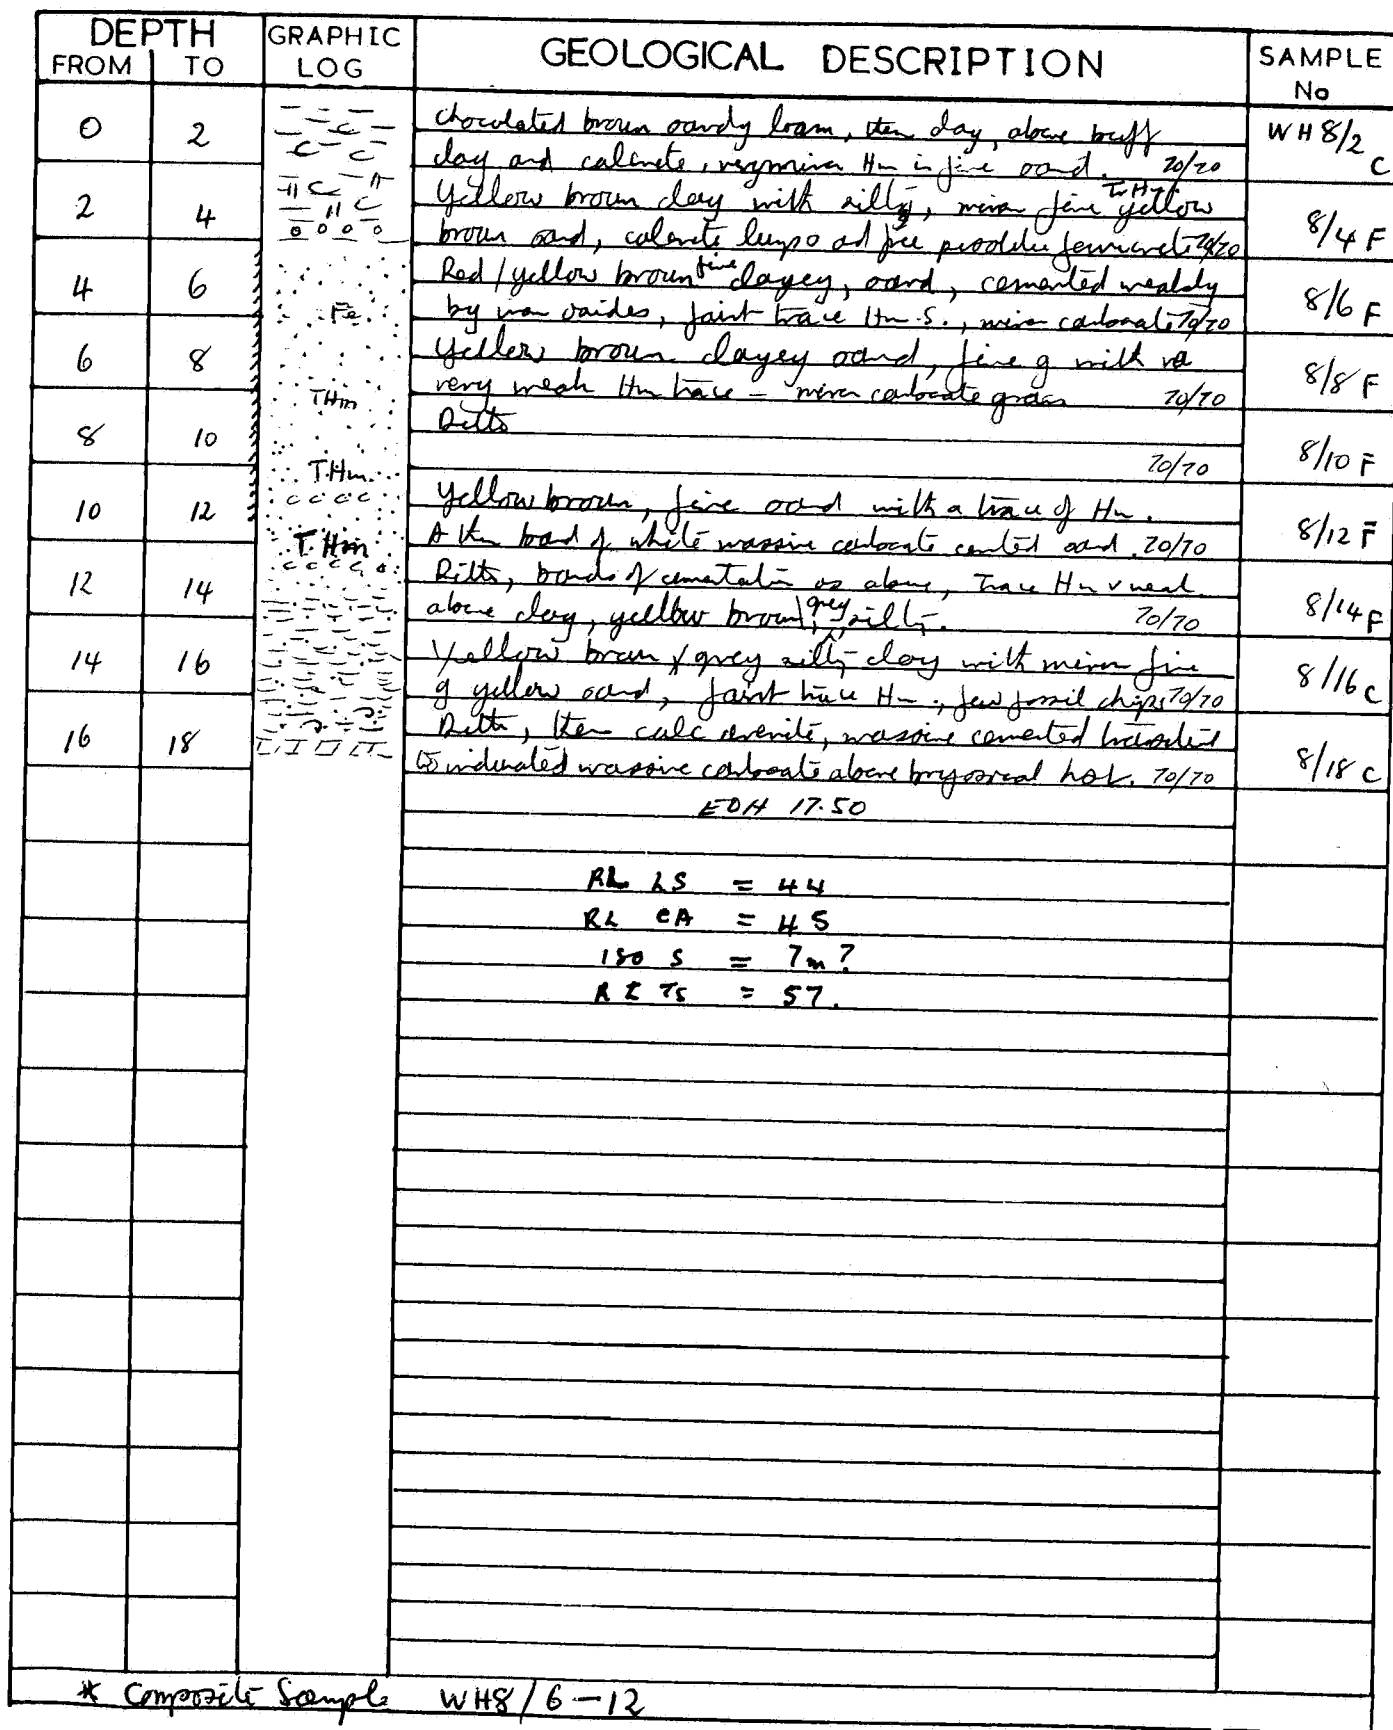 DEPTH GRAPHIC GEOLOGICAL DESCRIPTION SAMPLE
FROM TO LOG No
0 2 chocolated brown sandy loam, then clay, above buff WH 8/2
clay and calcrete, very minor Hm in fine sand. 70/70 C
2 4 Yellow brown clay with silty, minor fine Tr Hm yellow 8/4 F
brown sand, calcrete lumps ad free pisolitic ferricrete 70/70
4 6 Red/yellow brown fine clayey, sand, cemented weakly 8/6 F
Fe by iron oxides, faint trace Hm. S., minor carbonate 70/70
6 8 Yellow brown clayey sand, fine g with 8/8 F
THm very weak Hm trace – minor carbonate grains 70/70
8 10 Ditto 8/10 F
T.Hm 70/70
10 12 Yellow brown, fine sand with a trace of Hm. 8/12 F
T.Hm A thin band of white massive carbonate sand. 70/70
12 14 Ditto, bands of cementation as above, Trace Hm v weak 8/14 F
above clay, yellow brown, grey silty. 70/70
14 16 Yellow brown / grey silty clay with minor fine 8/16 C
g yellow sand, faint trace Hm, few fossil chips 70/70
16 18 Ditto, then calc arenite, massive cemented 8/18 C
to indurated massive carbonate above bryozoal 70/70
EOH 17.50
RL LS = 44
RL CA = 45
ISO S = 7m?
RL TS = 57.
* Composite Sample WH8/6-12